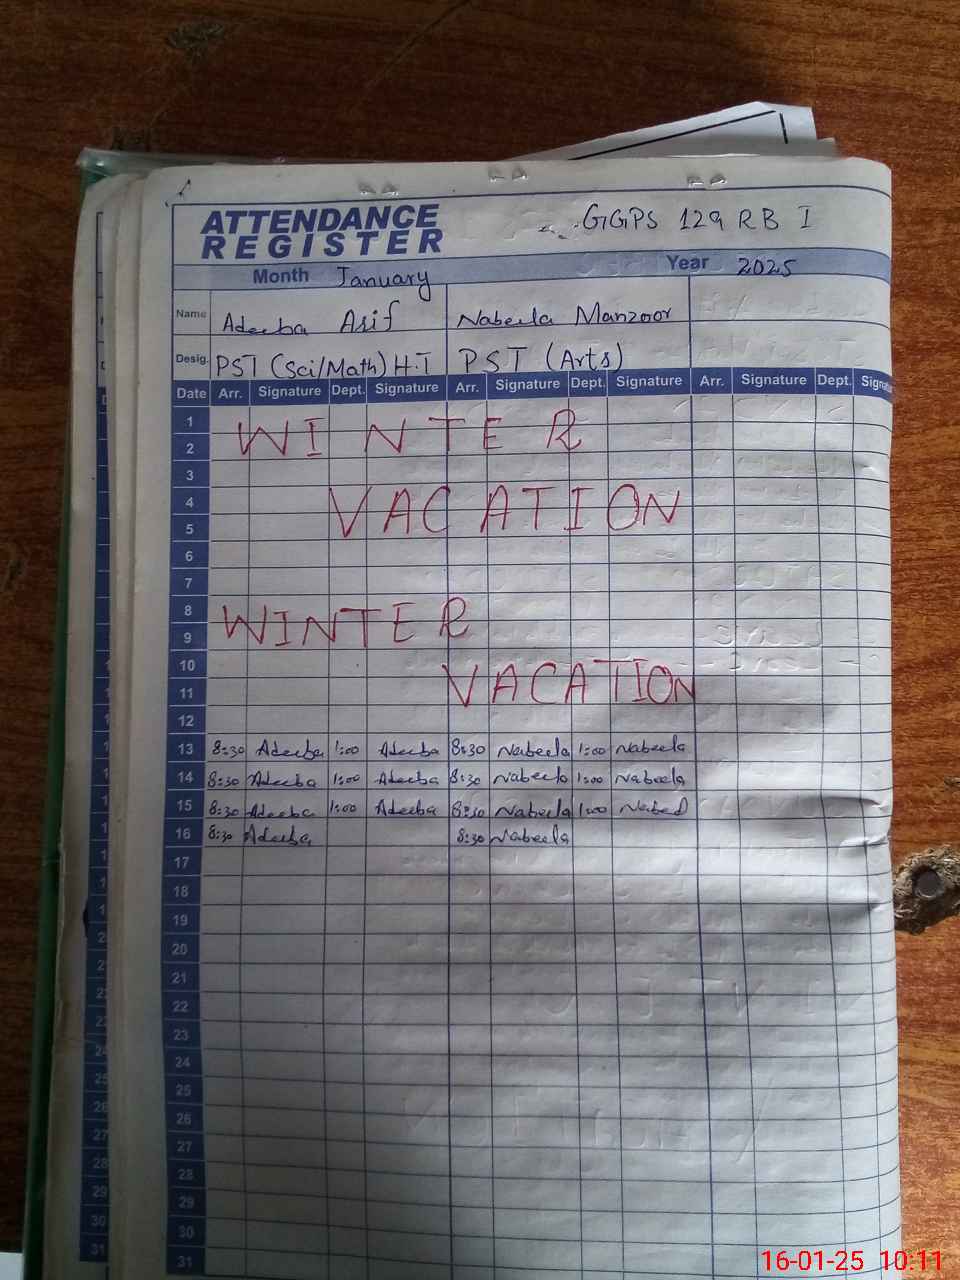 ATTENDANCE
REGISTER
GGPS 129 R B I
Month January Year 2025
Name Adeeba Asif Nabeela Manzoor
Desig. PST (Sci/Math) H.T PST (Arts)
Date Arr. Signature Dept. Signature Arr. Signature Dept. Signature Arr. Signature Dept.
1
WINTER
2
3
4
VACATION
5
6
7
8
WINTER
9
10
VACATION
11
12
13 8:30 Adeeba 1:00 Adeeba 8:30 Nabeela 1:00 Nabeela
14 8:30 Adeeba 1:00 Adeeba 8:30 Nabeela 1:00 Nabeela
15 8:30 Adeeba 1:00 Adeeba 8:30 Nabeela 1:00
16 8:30 Adeeba 8:30 Nabeela
17
18
19
20
21
22
23
24
25
26
27
28
29
30
31
16-01-25 10:11